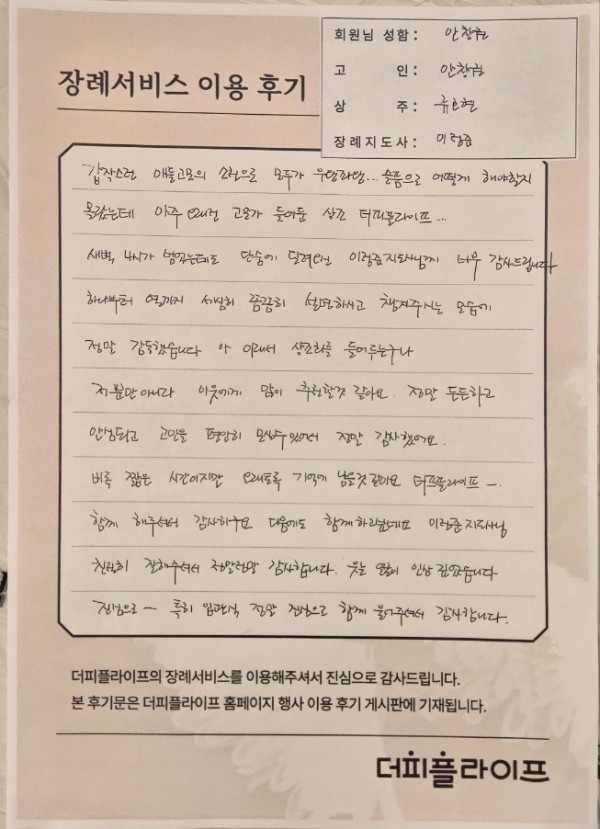 회원님 성함 : 안창권
고 인 : 안창권
상 주 : 류호현
장례지도사 : 이령준
장례서비스 이용 후기
갑작스런 애들고모의 소천으로 모두가 우왕좌왕... 슬픔으로 어떻게 해야할지
몰랐는데 아주 오래전 고모가 들어둔 상조 더피플라이프...
새벽 4시가 넘었는데도 단숨에 달려오신 이령준지도사님께 너무 감사드립니다
하나부터 열까지 세심히 꼼꼼히 설명하시고 챙겨주시는 모습에
정말 감동했습니다 아 이래서 상조회를 들어두는구나
저뿐만아니라 이웃에게 많이 추천할것 같아요. 정말 든든하고
안심되고 고인을 편안히 모실수있어서 정말 감사했어요.
비록 짧은 시간이지만 오래토록 기억에 남을것 같아요 더피플라이프 ㅡ.
함께 해주셔서 감사하구요 다음에도 함께하려는데요 이령준지도사님
친절히 잘해주셔서 정말정말 감사합니다. 웃는 얼굴이 인상 깊었습니다
진심으로 ㅡ 특히 입관식 정말 진심으로 함께 울어주셔서 감사합니다.
더피플라이프의 장례서비스를 이용해주셔서 진심으로 감사드립니다.
본 후기문은 더피플라이프 홈페이지 행사 이용 후기 게시판에 기재됩니다.
더피플라이프